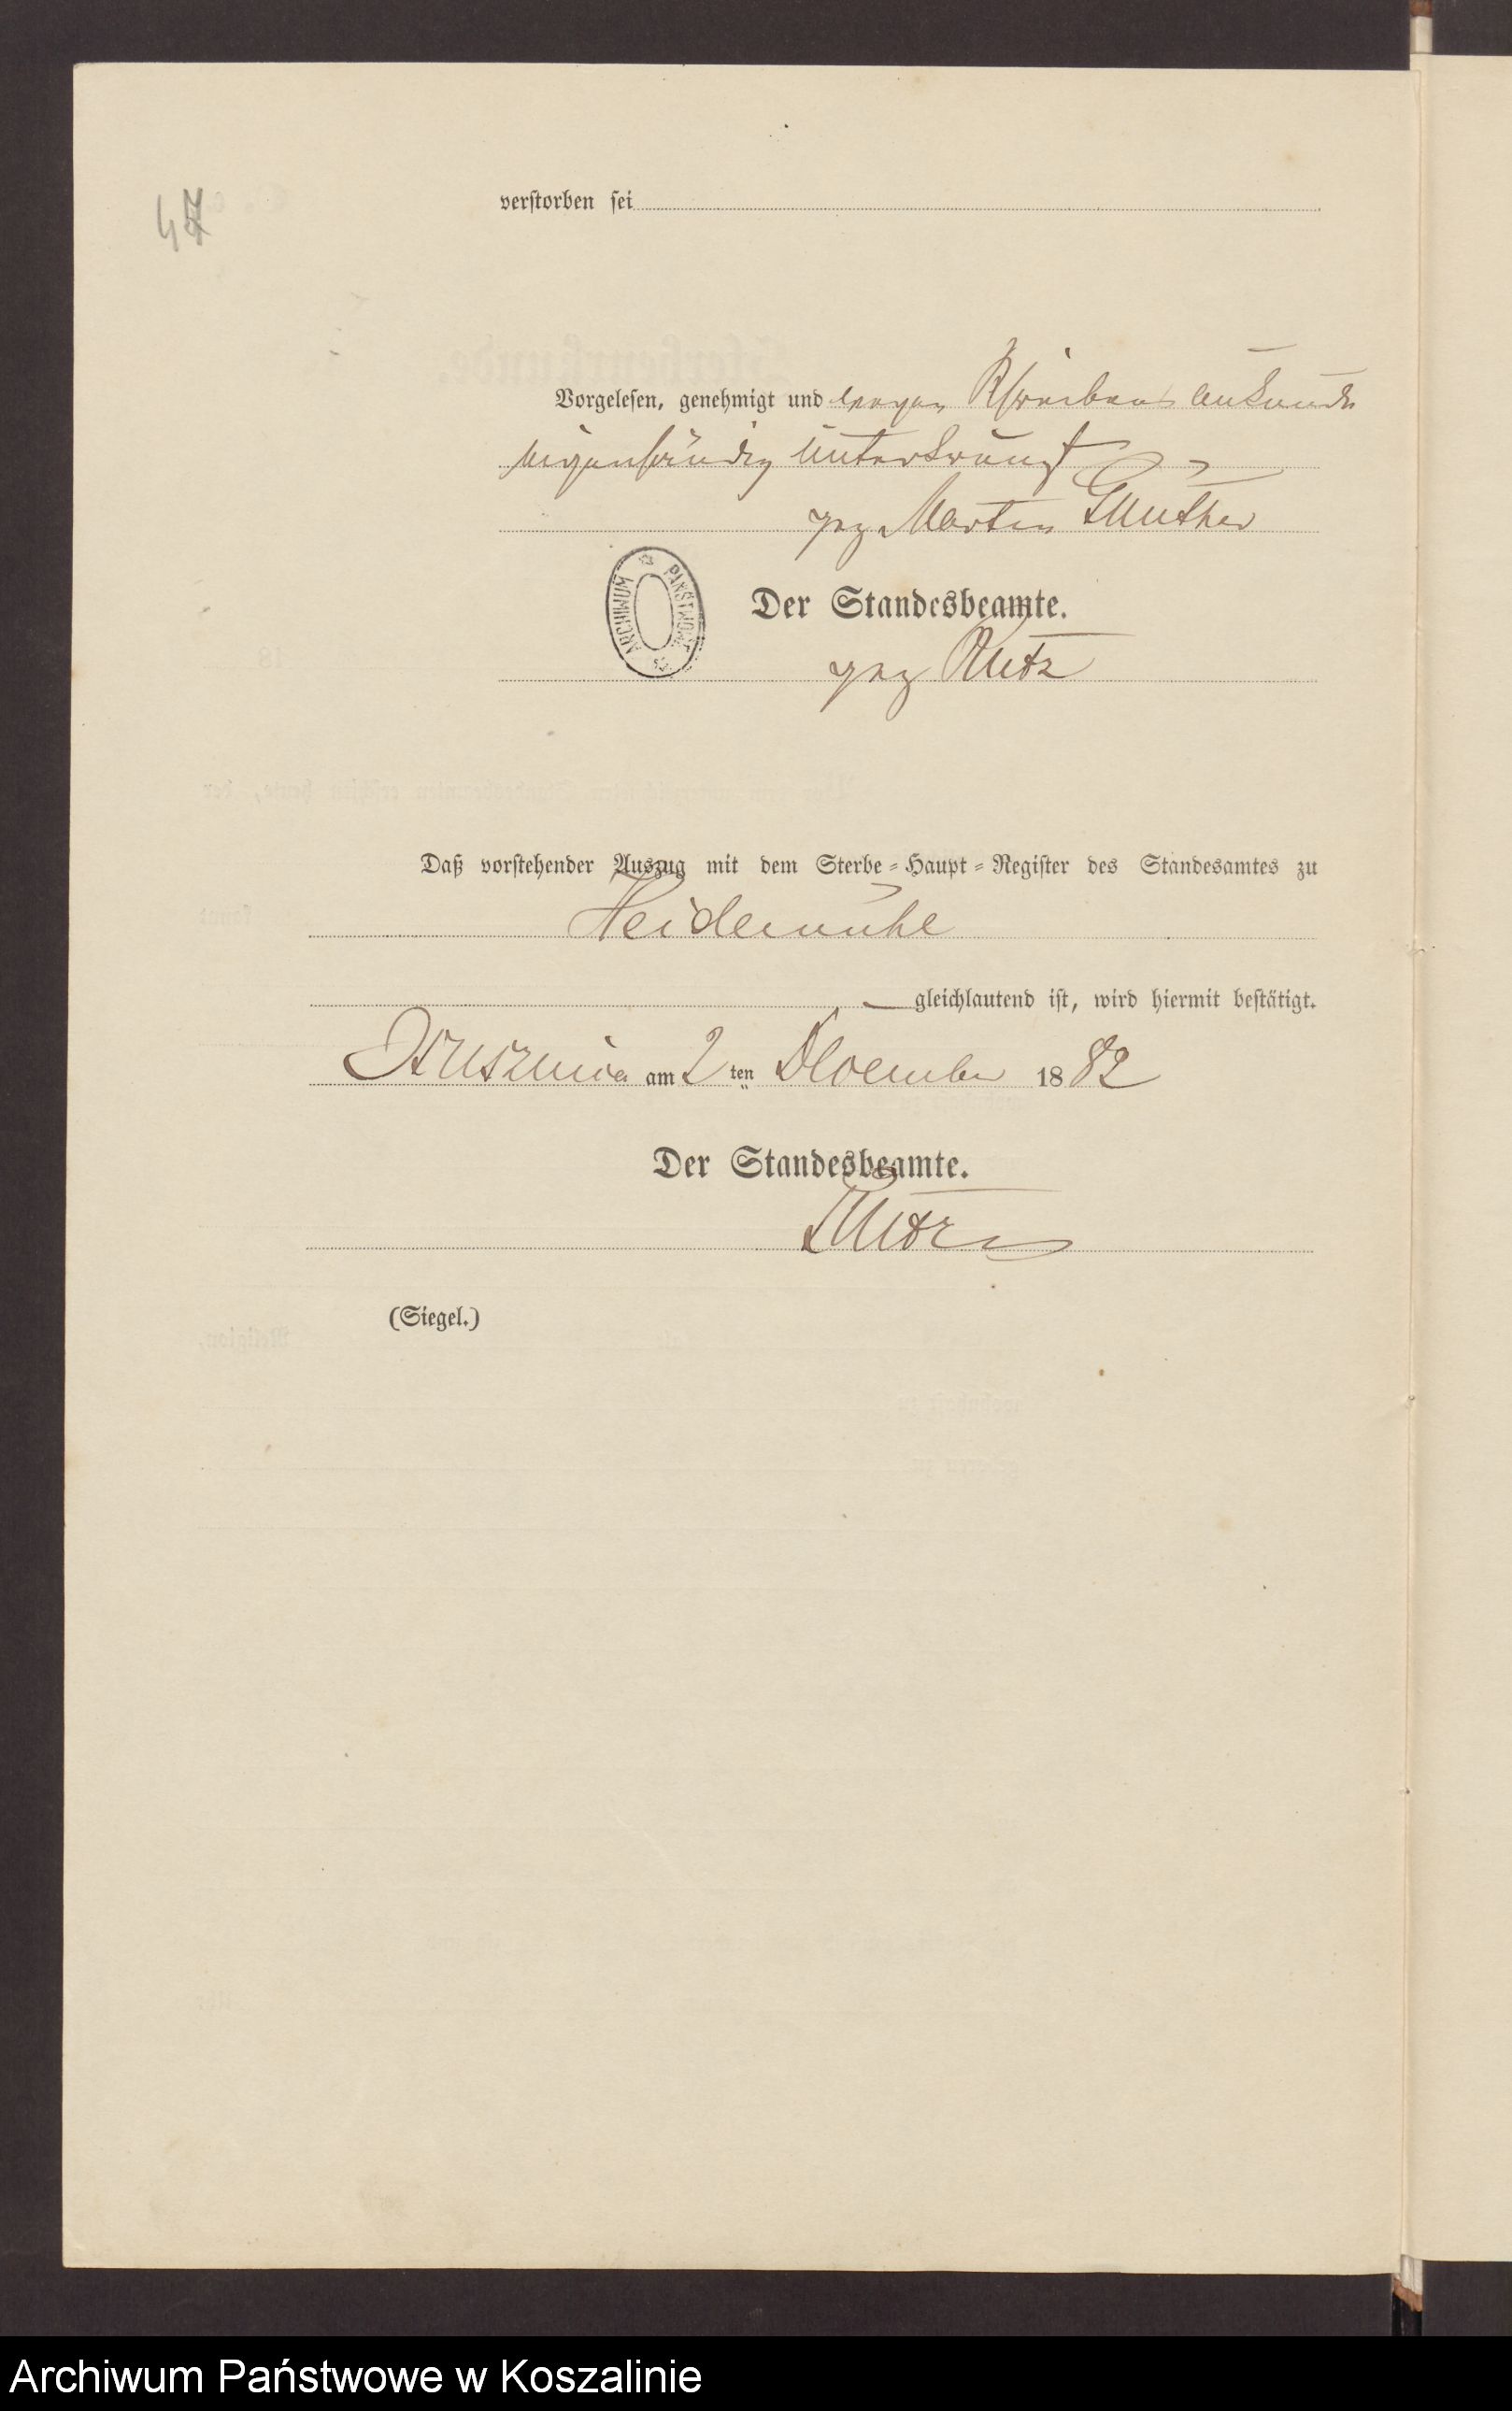 47
verstorben sei
Vorgelesen, genehmigt und wegen Schreibensunkunde
eigenhändig unterkreuzt
gez Martin Günther
ARCHIWUM PAŃSTWOWE
Der Standesbeamte.
gez Rutz
Daß vorstehender Auszug mit dem Sterbe-Haupt-Register des Standesamtes zu
Heidemühl
gleichlautend ist, wird hiermit bestätigt.
am 2 ten December 1882
Der Standesbeamte.
Rutz
(Siegel.)
Archiwum Państwowe w Koszalinie